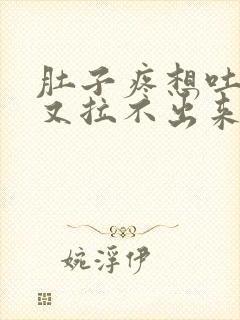 肚子疼想吐
又拉不出来
婉浮伊